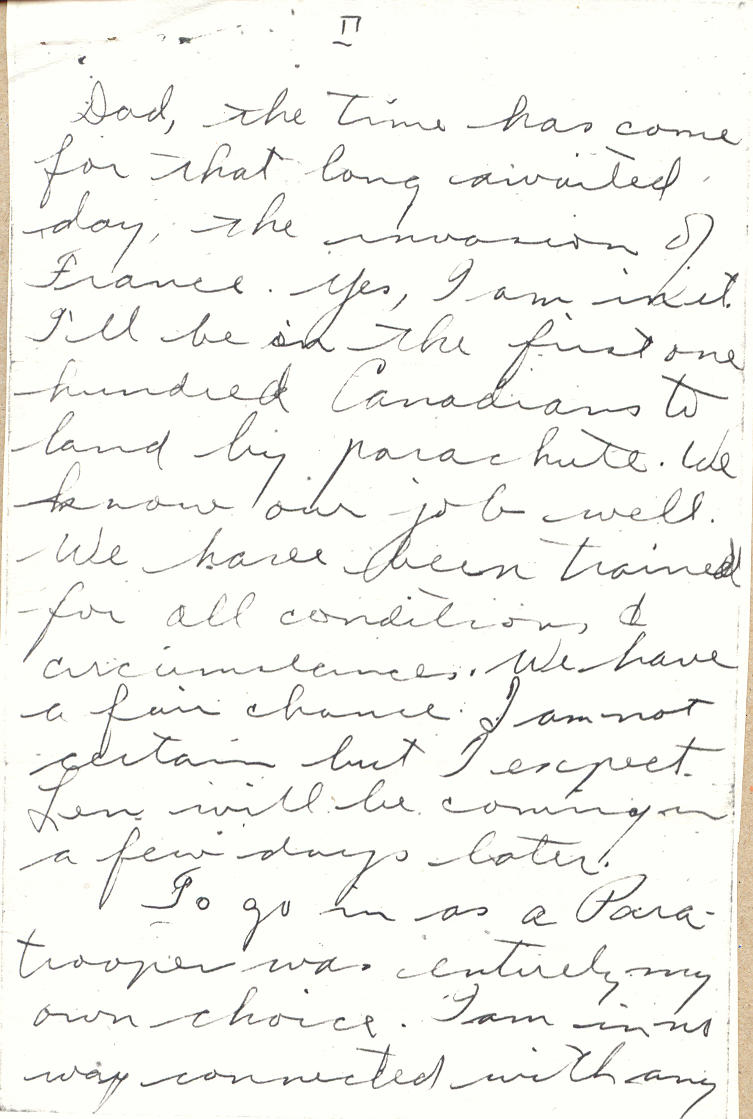 II
Dad, the time has come
for that long awaited
day, the invasion of
France. Yes, I am in it.
I'll be in the first one
hundred Canadians to
land by parachute. We
know our job well.
We have been trained
for all conditions &
circumstances. We have
a fair chance. I am not
certain but I expect
Len will be coming in
a few days later.
To go in as a Para-
trooper was entirely my
own choice. I am in no
way connected with any